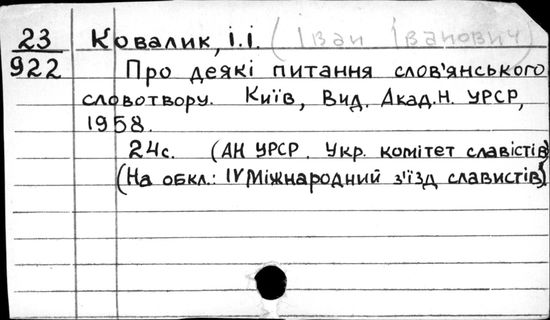 23 Ковалик, І.І. (Іван Іванович)
922 Про деякі питання слов'янського
словотвору. Київ, Вид. Акад. Н. УРСР,
1958.
24с. (АН УРСР. Укр. комітет славістів)
(На обкл.: IV Міжнародний з'їзд славистів)